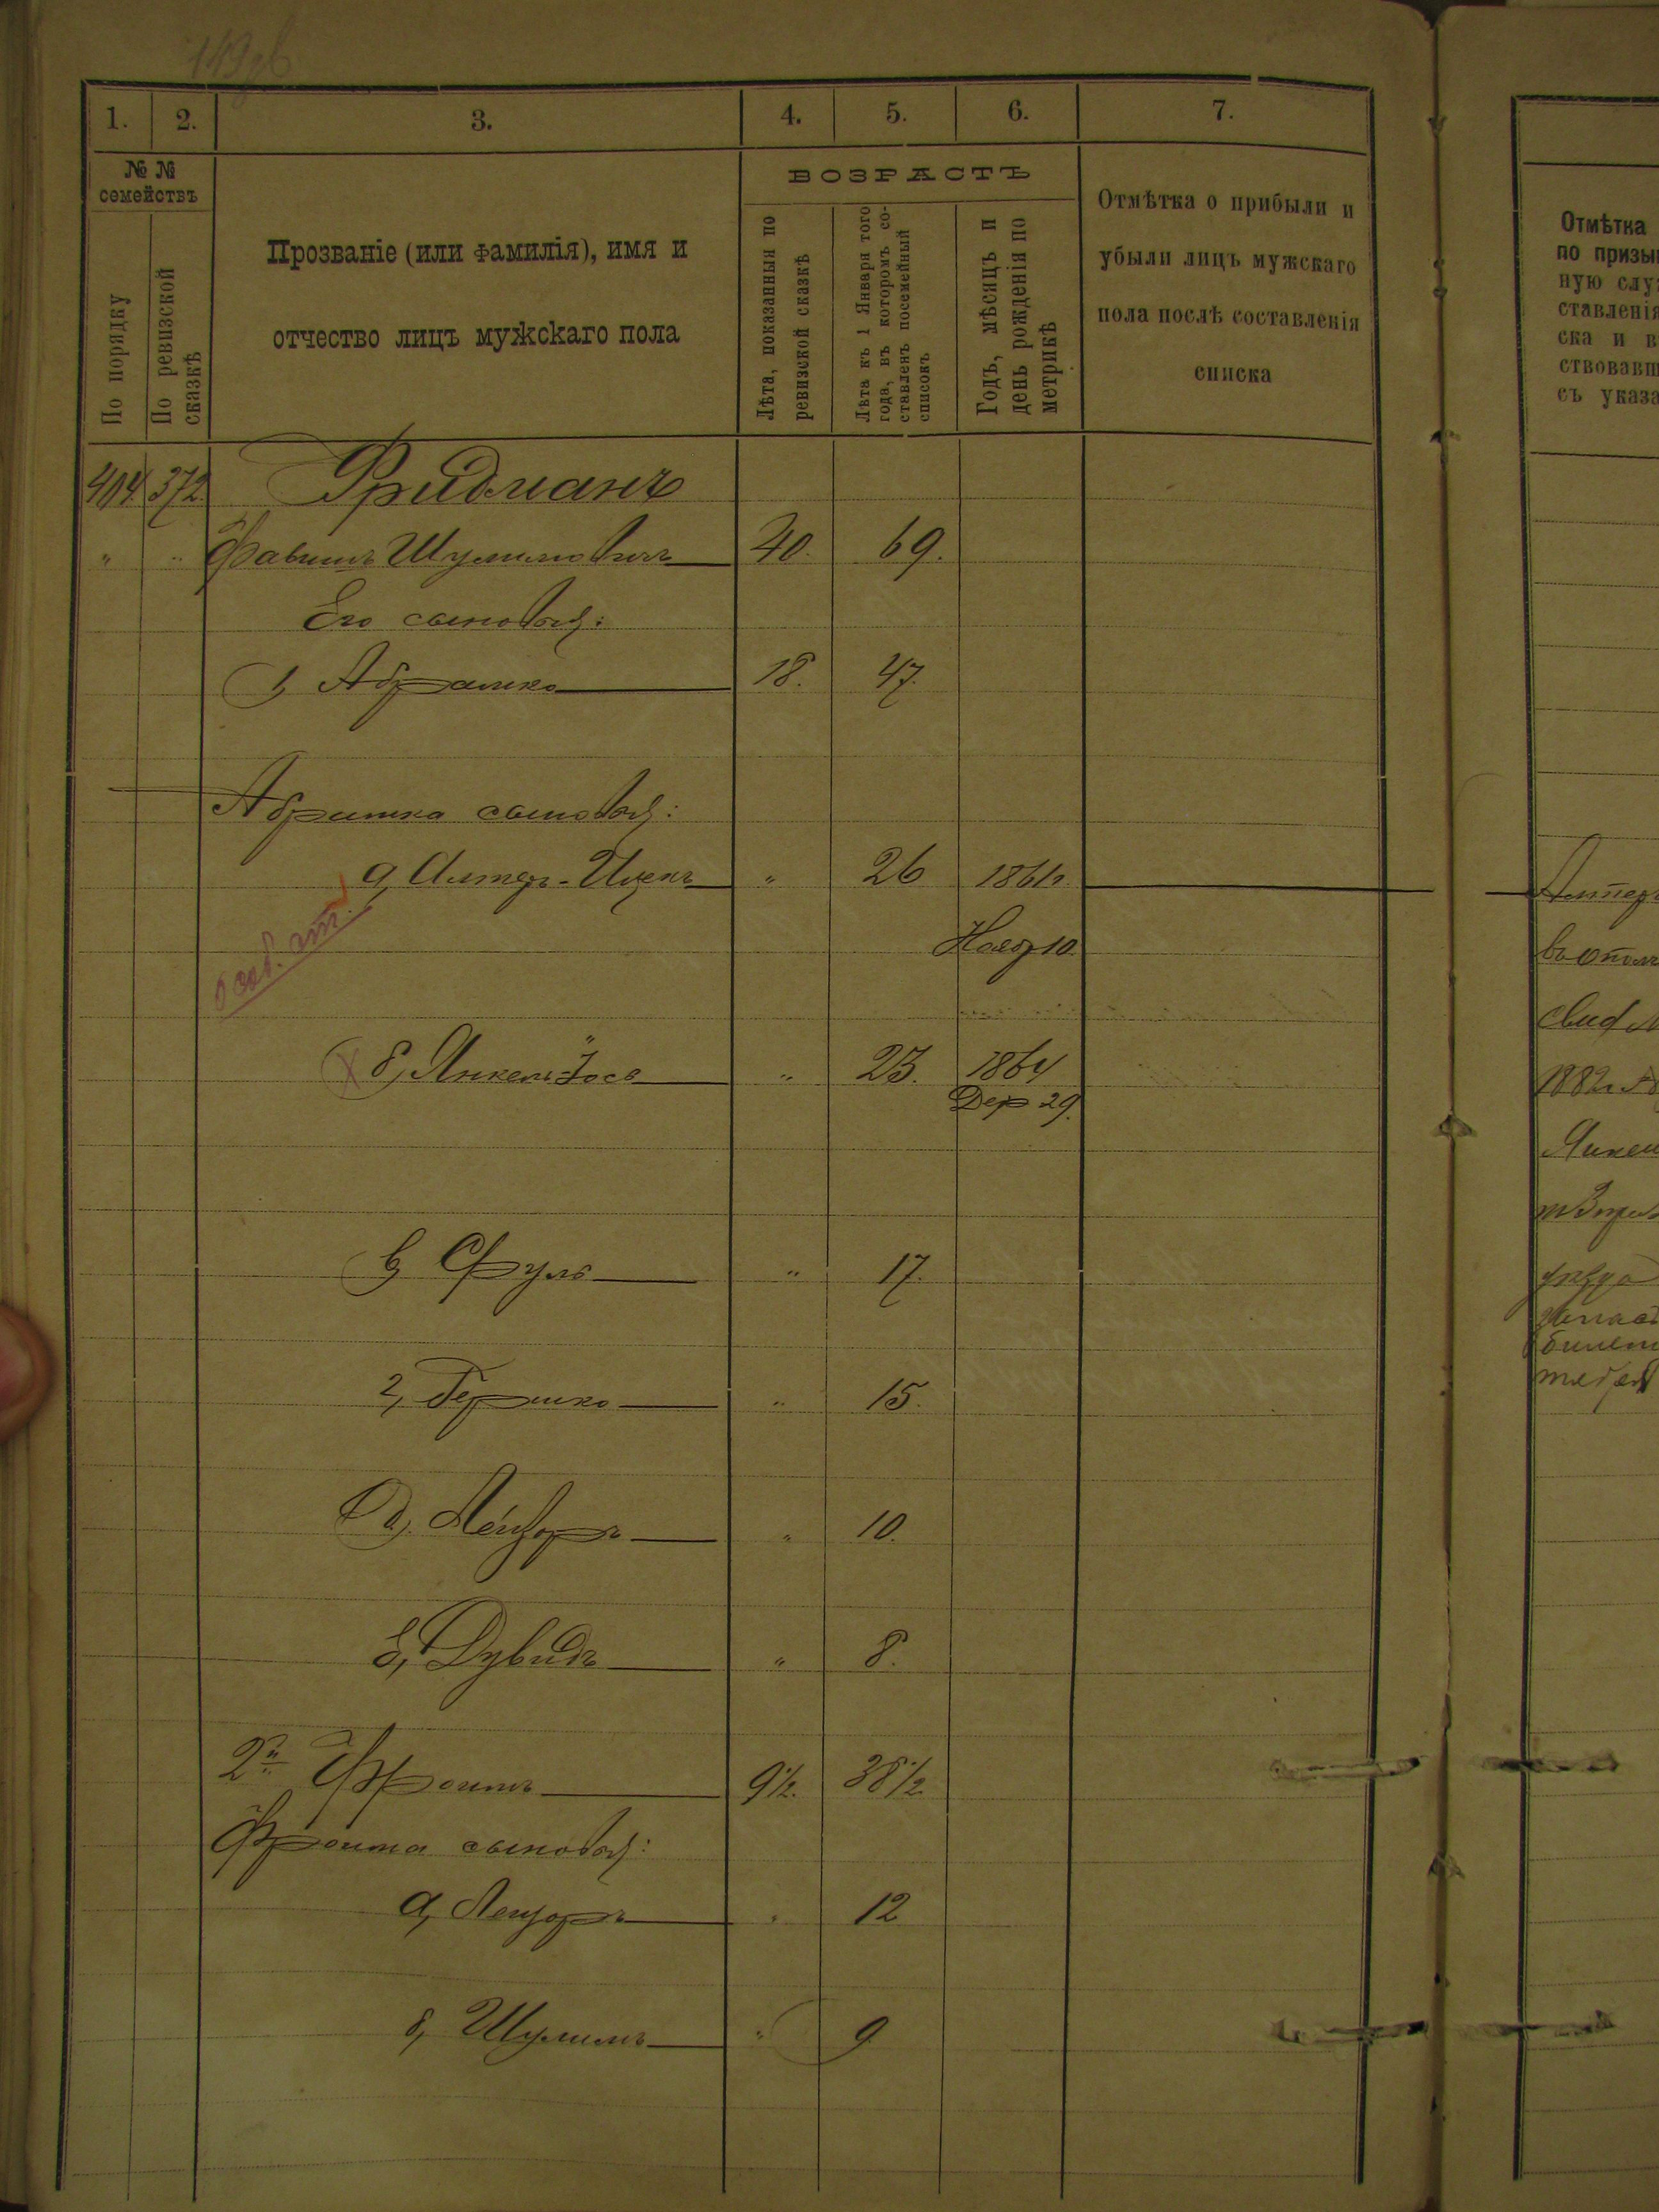 149об
1. 2. 3. 4. 5. 6. 7.
№ №
семействъ
По порядку
По ревизской
сказкѣ
Прозваніе (или фамилія), имя и
отчество лицъ мужскаго пола
ВОЗРАСТЪ
Лѣта, показанныя по
ревизской сказкѣ
Лѣта къ 1 Января того
года, въ которомъ со-
ставленъ посемейный
списокъ
Годъ, мѣсяцъ и
день рожденія по
метрикѣ
Отмѣтка о прибыли и
убыли лицъ мужскаго
пола послѣ составленія
списка
404 372 Фридманъ
" " Фавишъ Шулимовичъ 40. 69.
Его сыновья:
1, Абрамко 18. 47.
Абрамка сыновья:
а, Алтеръ-Ицекъ " 26 1861г.
Нояб 10
особ. от.
б, Янкель Іось " 23. 1864
Дек 29.
в, Сруль " 17.
г, Гершко " 15.
д, Лейзоръ " 10.
е, Дувидъ " 8.
2й Фроимъ 9½. 38½.
Фроима сыновья:
а, Лейзоръ " 12
б, Шулимъ " 9
Отмѣтка
по призы
ную слу
ставленія
ска и в
ствовавш
съ указа
Алтеръ
въ опол
свид
1882г.
Янкел
билет